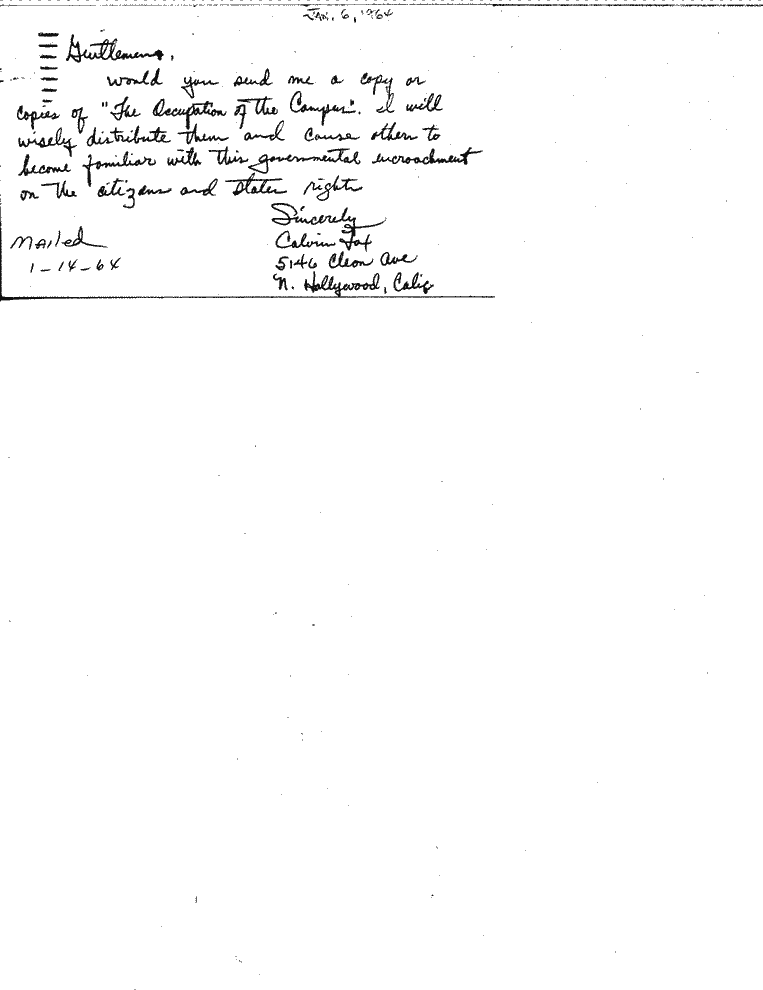 JAN. 6, 1964
Gentlemens,
would you send me a copy or
copies of "The Occupation of the Campus". I will
wisely distribute them and cause others to
become familiar with this governmental encroachment
on the citizens and states rights
Sincerely
Calvin Fox
5146 Cleon Ave
N. Hollywood, Calif
Mailed
1-14-64